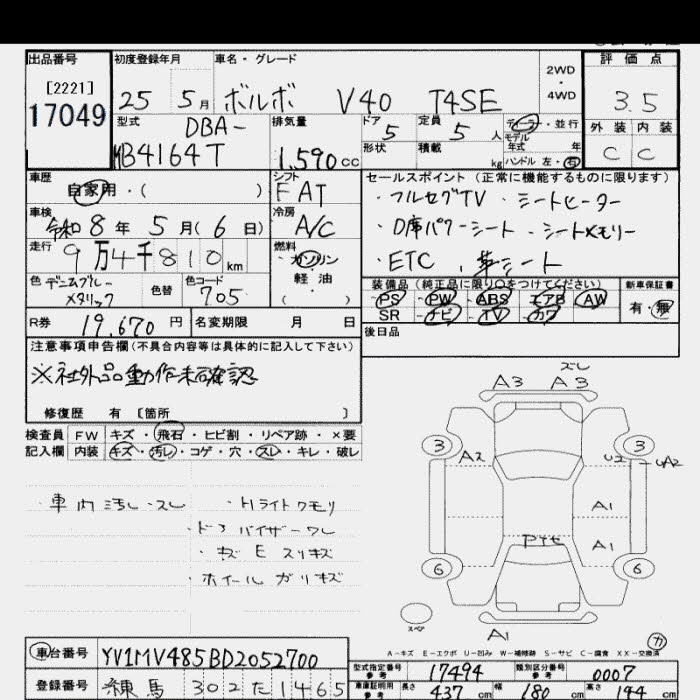 出品番号 初度登録年月 車名・グレード 評価点
[2221]
17049
25 5月 ボルボ V40 T4SE
2WD・4WD
3.5
型式 DBA-
MB4164T
排気量 1,590cc
ドア 5 定員 5人 ディーラー・並行
モデル年式 年
形状 積載 kg ハンドル 左・右
外装 内装
C C
車歴 自家用・( )
シフト FAT
車検 令和8年5月(6日)
冷房 A/C
走行 9万4千810km
燃料 ガソリン 軽油 ( )
色 デニムブルーメタリック 色替 色コード 705
セールスポイント(正常に機能するものに限ります)
・フルセグTV ・シートヒーター
・D席パワーシート ・シートメモリー
・ETC ・革シート
装備品(純正品に限り○をつけてください) 新車保証書
PS PW ABS エアB AW
SR ナビ TV カワ
有・無
R券 19,670円 名変期限 月 日
後日品
注意事項申告欄(不具合内容等は具体的に記入して下さい)
※社外品動作未確認
修復歴 有 [箇所 ]
検査員 FW キズ・飛石・ヒビ割・リペア跡・×要
記入欄 内装 キズ・汚レ・コゲ・穴・スレ・キレ・破レ
・車内汚レ・スレ ・Hライトクモリ
・ドアバイザーワレ
・キズEスリキズ
・ホイールガリキズ
A3 A3 スレ
3 3
A2 U2 UA2
A1
A1
6 6
スペア
A1
カ
A-キズ E-エクボ U-凹み W-補修跡 S-サビ C-腐食 XX-交換済
車台番号 YV1MV485BD2052700
登録番号 練馬 302 た 1465
型式指定番号 参考 17494 類別区分番号 参考 0007
車庫証明用 参考 長さ 437cm 幅 180cm 高さ 44cm